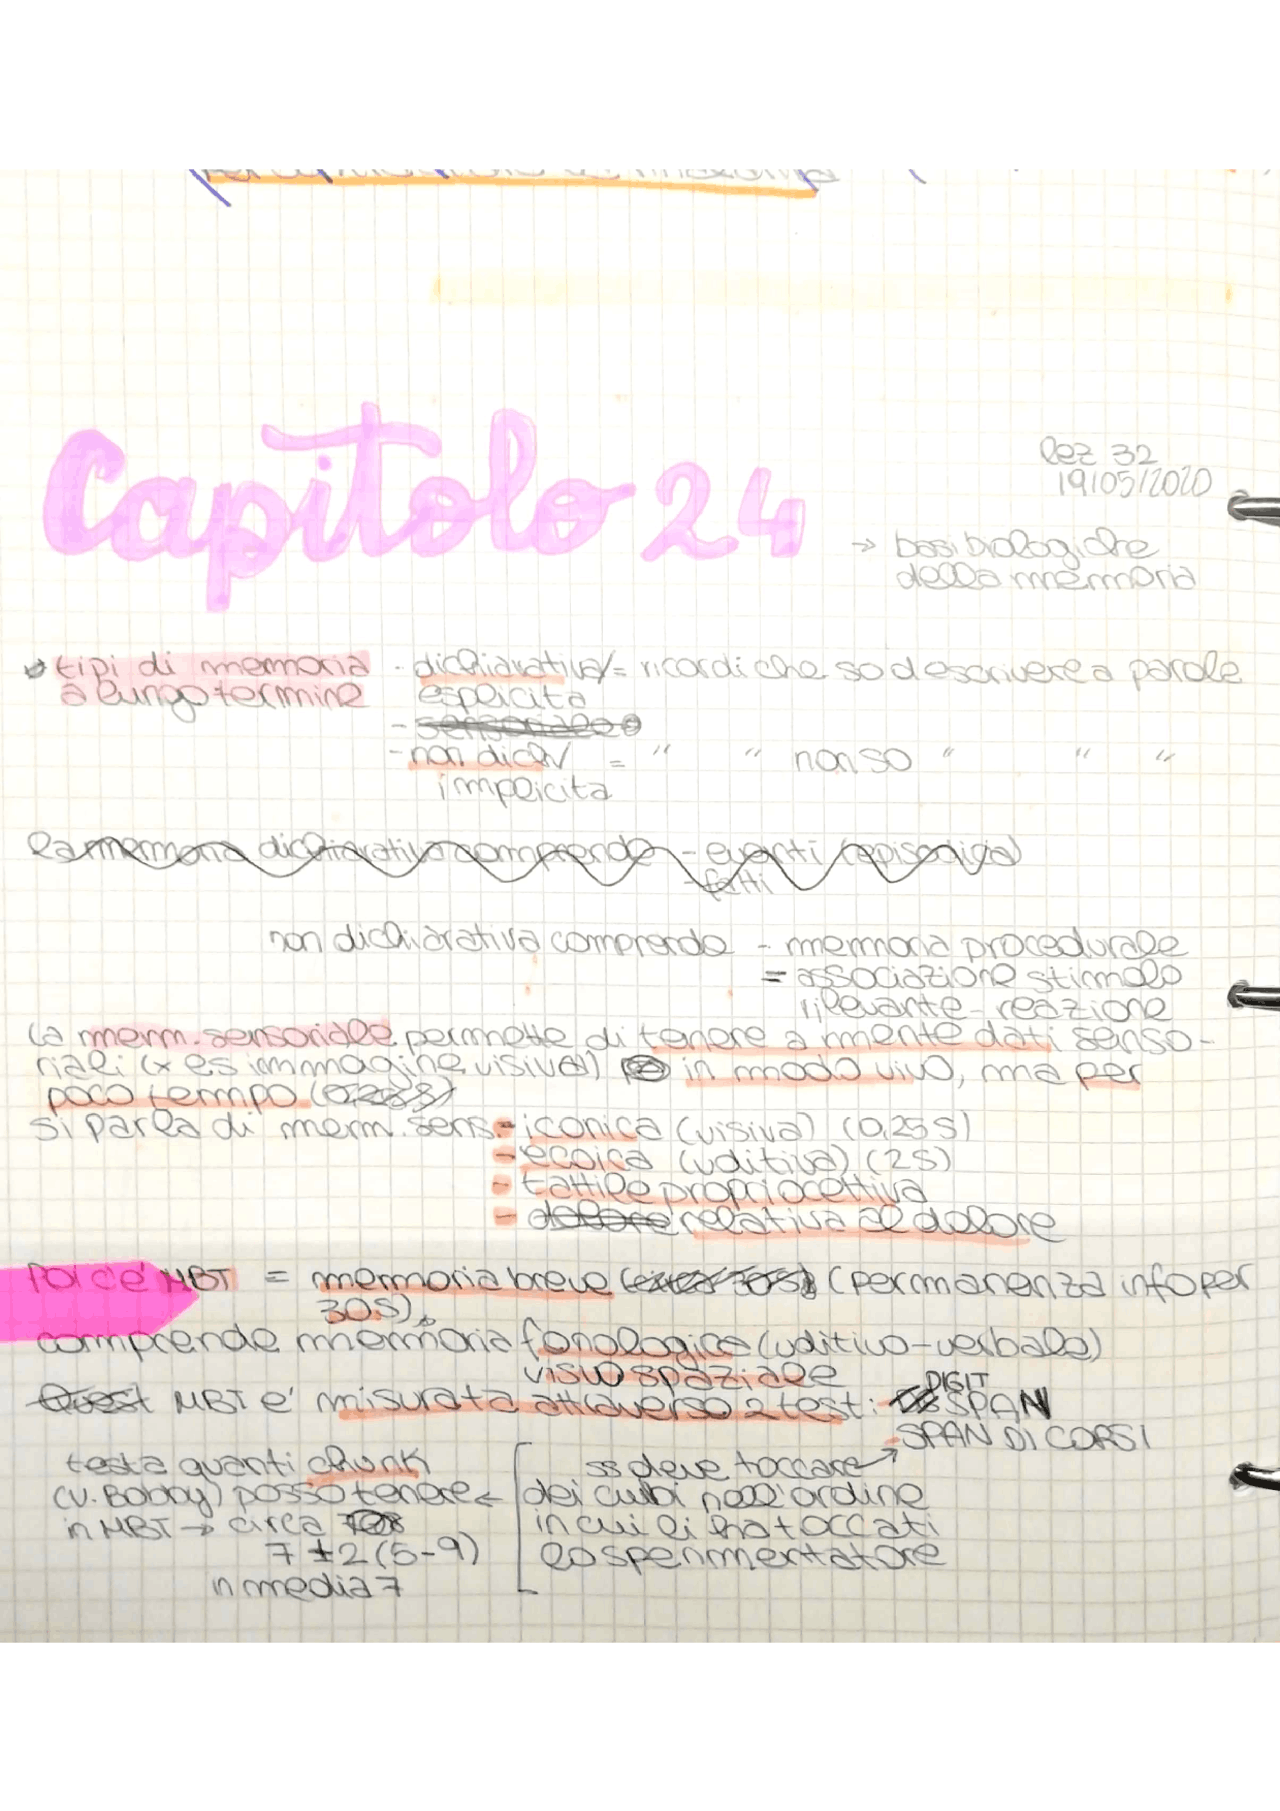 Capitolo 24
lez 32
19/05/2020
→ basi biologiche
della memoria
tipi di memoria - dichiarativa/= ricordi che so descrivere a parole
a lungo termine esplicita
- sensoriale
- non dich/ = " " non so " " "
implicita
la memoria dichiarativa comprende - eventi (episodica)
- fatti
non dichiarativa comprende - memoria procedurale
= associazione stimolo
rilevante - reazione
la mem. sensoriale permette di tenere a mente dati senso-
riali (x es immagine visiva) in modo vivo, ma per
poco tempo
si parla di mem. sens. - iconica (visiva) (0,25s)
- ecoica (uditiva) (2s)
- tattile propriocettiva
- dolore relativa al dolore
Poi c'è MBT = memoria breve (permanenza info per
30s).
comprende memoria fonologica (uditivo-verbale)
visuospaziale
Quest MBT e' misurata attraverso 2 test: DIGIT
SPAN
SPAN DI CORSI
testa quanti chunk
(v. Bobby) posso tenere ←
in MBT → circa
7 ± 2 (5-9)
in media 7
ss deve toccare
dei cubi nell'ordine
in cui li ha toccati
lo sperimentatore